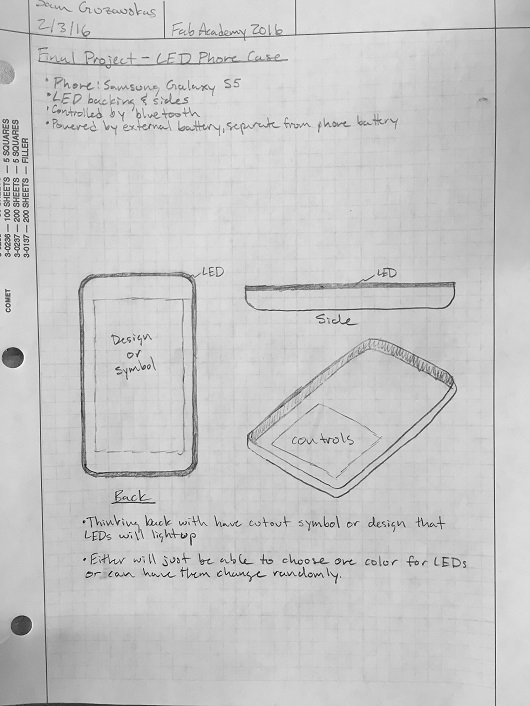 Sean
2/3/16
Fab Academy 2016
Final Project - LED Phone Case
• Phone: Samsung Galaxy S5
• LED backing & sides
• Controlled by bluetooth
• Powered by external battery, separate from phone battery
3-0236 — 100 SHEETS — 5 SQUARES
3-0237 — 200 SHEETS — 5 SQUARES
3-0137 — 200 SHEETS — FILLER
COMET
LED
Design
or
Symbol
Back
LED
Side
controls
• Thinking back with have cutout symbol or design that
LEDs will light up
• Either will just be able to choose one color for LEDs
or can have them change randomly.